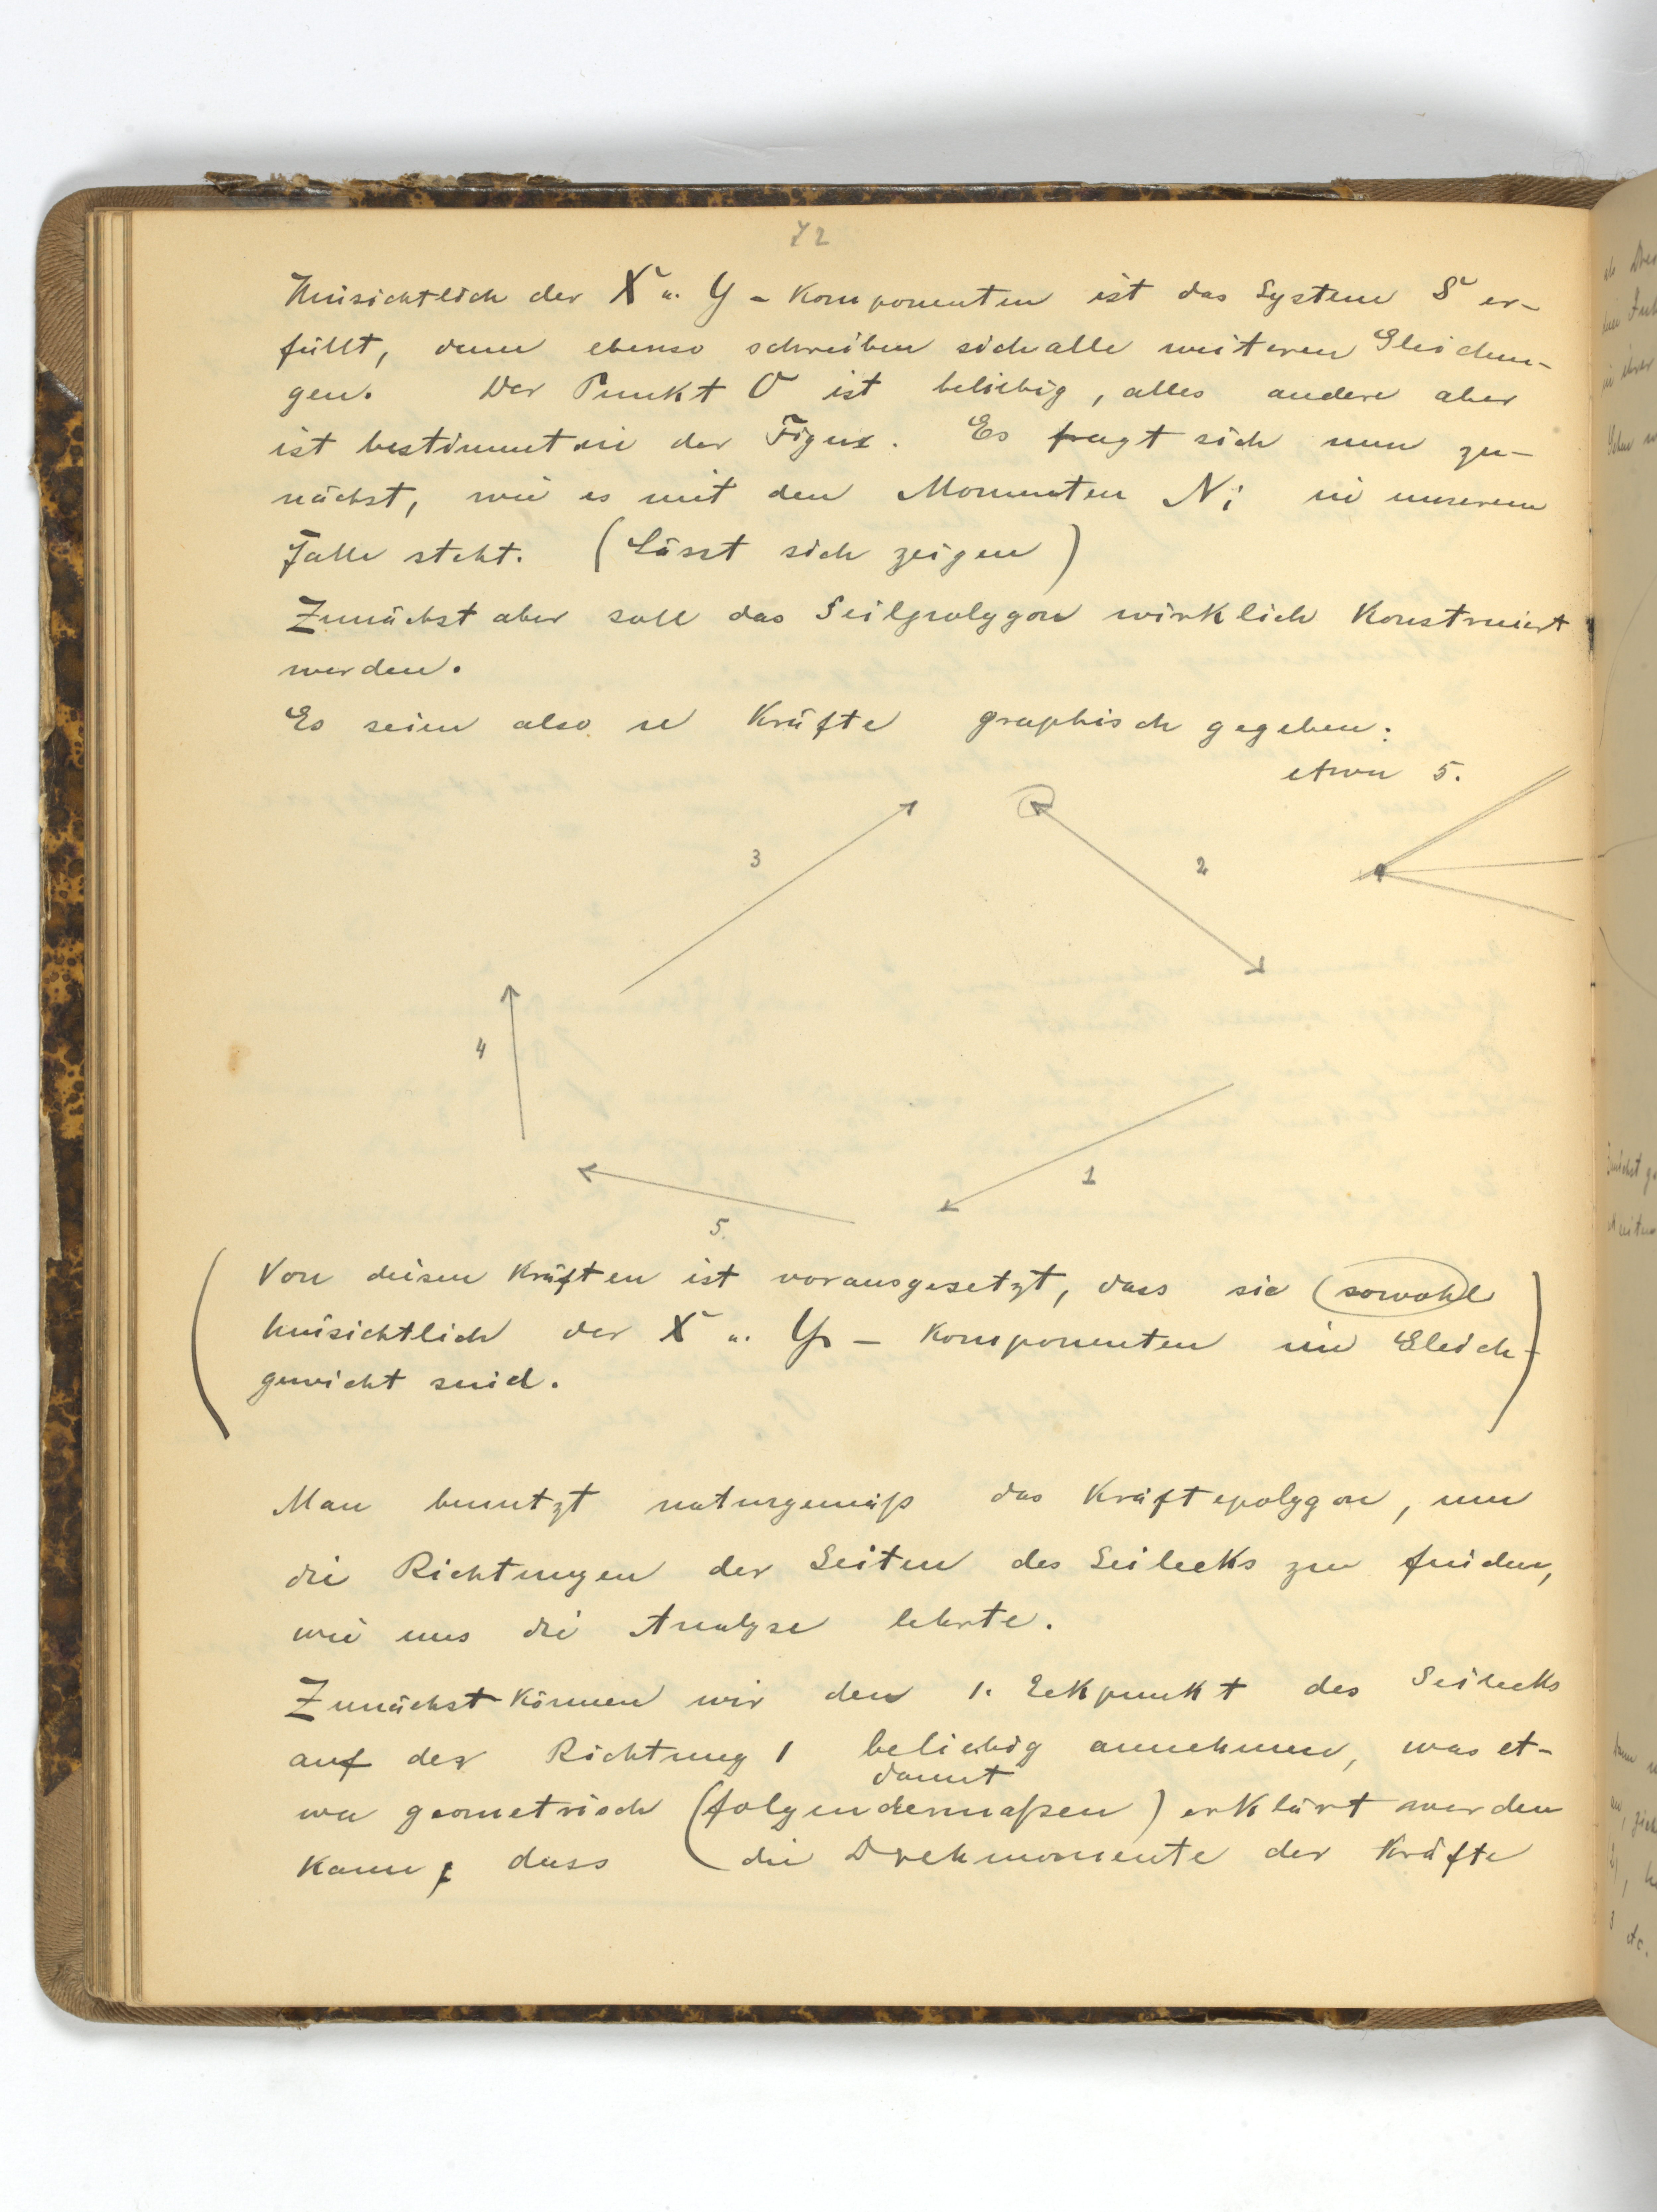 72
Hinsichtlich der X u. Y - Komponenten ist das System S er-
füllt, denn ebenso schreiben sich alle weiteren Gleichun-
gen. Der Punkt O ist beliebig, alles andere aber
ist bestimmt in der Figur. Es fragt sich nun zu-
nächst, wie es mit den Momenten Ni in unserem
Falle steht. (Lässt sich zeigen)
Zunächst aber soll das Seilpolygon wirklich Konstruiert
werden.
Es seien also n Kräfte graphisch gegeben:
etwa 5.
3
2
4
1
5.
(Von diesen Kräften ist vorausgesetzt, dass sie (sowohl)
hinsichtlich der X u. Y - Komponenten im Gleich-
gewicht sind.)
Man benutzt naturgemäß das Kräftepolygon, um
die Richtungen der Seiten des Seilecks zu finden,
wie uns die Analyse lehrte.
Zunächst können wir den 1. Eckpunkt des Seilecks
auf der Richtung 1 beliebig annehmen, was et-
damit
wa geometrisch (folgendermaßen) erklärt werden
kann, dass die Drehmomente der Kräfte